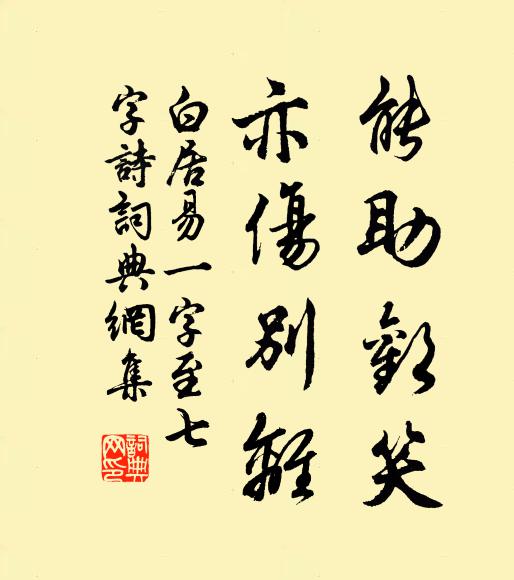 能助歡笑
亦傷別離
白居易一字至七
字詩詞典網集
詞典網印